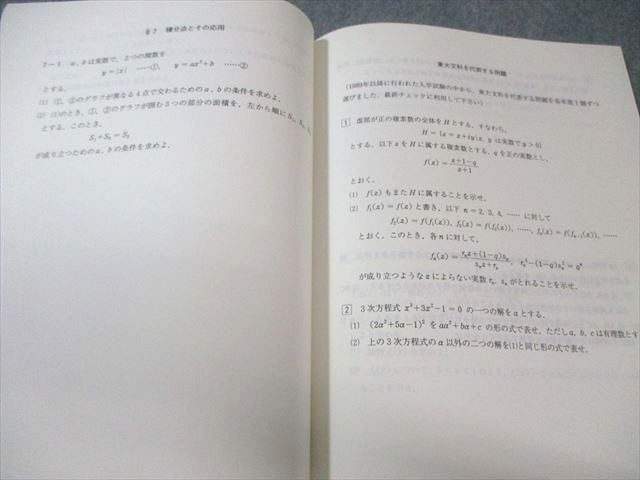 §7 積分法とその応用
7-1 a, bは実数で、2つの関数を
y=|x| ……①, y=ax²+b ……②
とする。
(1) ①, ②のグラフが異なる4点で交わるためのa, bの条件を求めよ。
(2) (1)のとき、①, ②のグラフが囲む3つの部分の面積を、左から順にS₁, S₂, S₃
とする。このとき、
S₁+S₃=S₂
が成り立つためのa, bの条件を求めよ。
東大文科を代表する問題
(1989年以降に行われた入学試験の中から、東大文科を代表する問題を各年度1個ずつ
選びました。最終チェックに利用して下さい)
1 虚部が正の複素数の全体をHとする。すなわち、
H={z=x+iy|x, yは実数でy>0}
とする。以下zをHに属する複素数とする。qを正の実数とし、
f(z)=z+1-q/z+1
とおく。
(1) f(z)もまたHに属することを示せ。
(2) f₁(z)=f(z)と書き、以下n=2, 3, 4, ……に対して
f₂(z)=f(f₁(z)), f₃(z)=f(f₂(z)), ……, fₙ(z)=f(fₙ₋₁(z)), ……
とおく。このとき、各nに対して、
fₙ(z)=rₙz+(1-q)sₙ/sₙz+rₙ, rₙ²-(1-q)sₙ²=qⁿ
が成り立つようなzによらない実数rₙ, sₙがとれることを示せ。
2 3次方程式 x³+3x²-1=0 の一つの解をαとする。
(1) (2α²+5α-1)² をaα²+bα+cの形の式で表せ。ただしa, b, cは有理数とす
(2) 上の3次方程式のα以外の二つの解を(1)と同じ形の式で表せ。